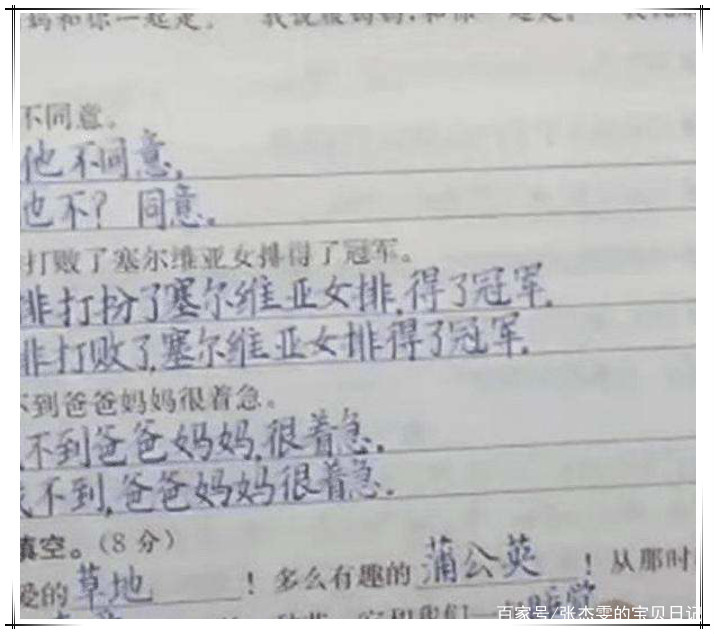 妈和你一起走。 我说服妈妈,和你一起走。 我
不同意。
他不同意,
也不?同意。
打败了塞尔维亚女排得了冠军。
非打扮了塞尔维亚女排,得了冠军.
非打败了,塞尔维亚女排得了冠军.
不到爸爸妈妈很着急。
不到爸爸妈妈,很着急.
不到,爸爸妈妈很着急.
填空。(8分)
爱的 草地 ! 多么有趣的 蒲公英 ! 从那时
百家号/张杰雯的宝贝日记